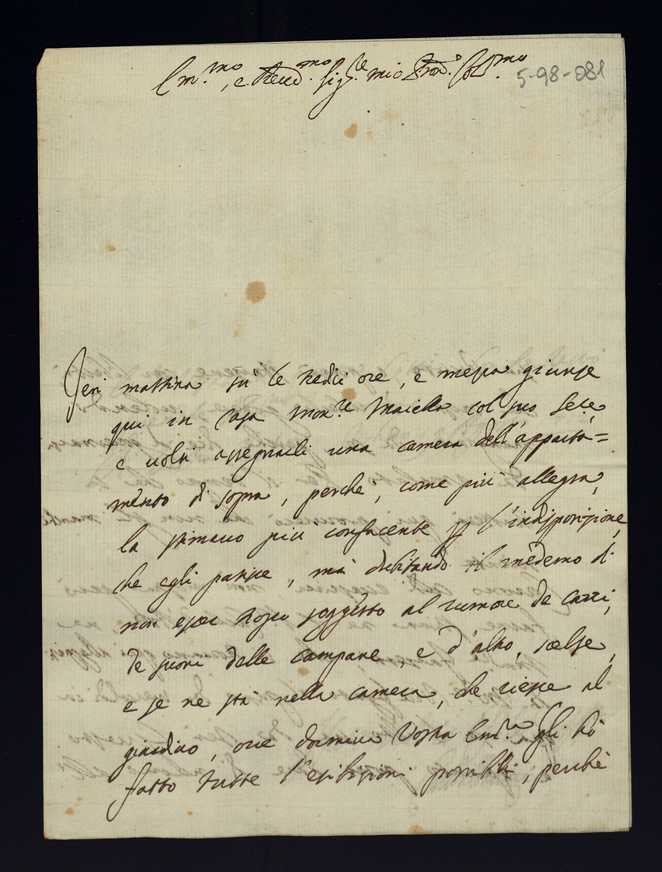 Em.mo, e Reud.mo Sig.re mio Pron. Col.mo
5-98-081
Jeri mattina su le tredici ore, e mezza giunse
qui in casa Mon.r Maiella col suo
e volsi assegnarli una camera dell'apparta=
mento di sopra, perche, come più allegra,
la stimavo più confacente p l'indisposizione,
che egli patisce, mà dubitando il medemo di
non esser troppo soggetto al rumore de carri,
de suoni delle campane, e d'altro, scelse,
e se ne stà nella camera, che riesce al
giardino, ove dormiva Vostra Em.za gli hò
fatto tutte l'esibizioni possibili, perchè